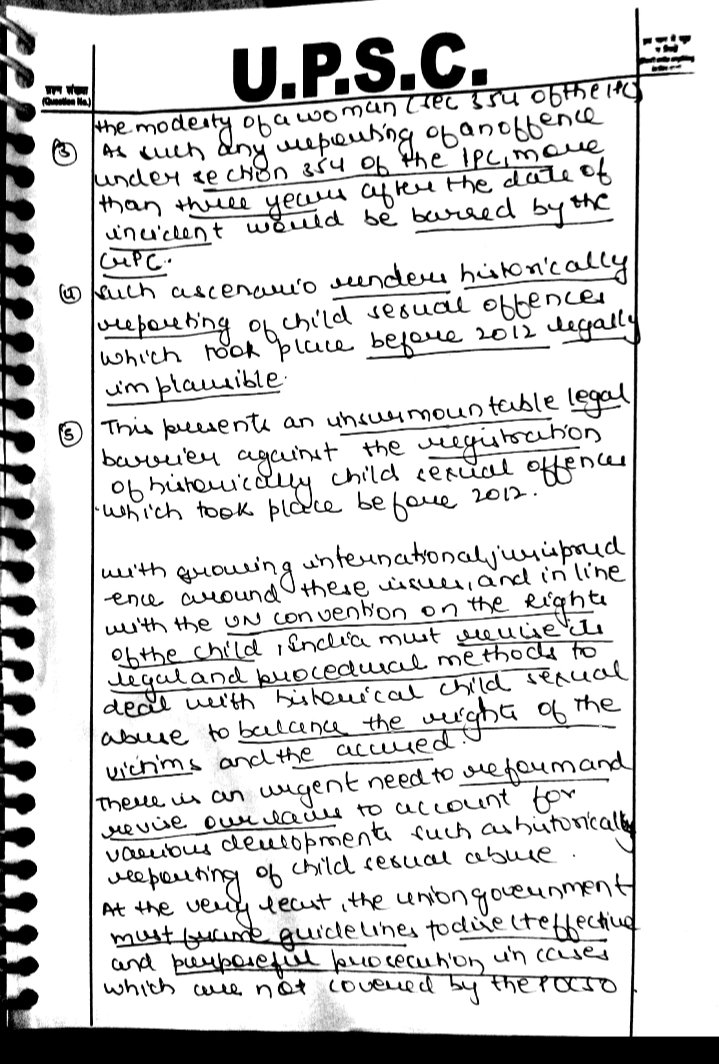 U.P.S.C.
प्रश्न संख्या
(Question No.)
the modesty of a woman (sec 354 of the IPC)
③ As such any reporting of an offence
under section 354 of the IPC, more
than three years after the date of
incident would be barred by the
CrPC.
④ Such a scenario renders historically
reporting of child sexual offences
which took place before 2012 legally
implausible.
⑤ This presents an unsurmountable legal
barrier against the registration
of historically child sexual offences
which took place before 2012.
with growing international jurisprud
ence around these issues, and in line
with the UN convention on the Rights
of the child, India must revise its
legal and procedural methods to
deal with historical child sexual
abuse to balance the rights of the
victims and the accused.
There is an urgent need to reform and
revise our laws to account for
various developments such as historically
reporting of child sexual abuse.
At the very least, the union government
must frame guidelines to direct effective
and purposeful prosecution in cases
which are not covered by the POCSO